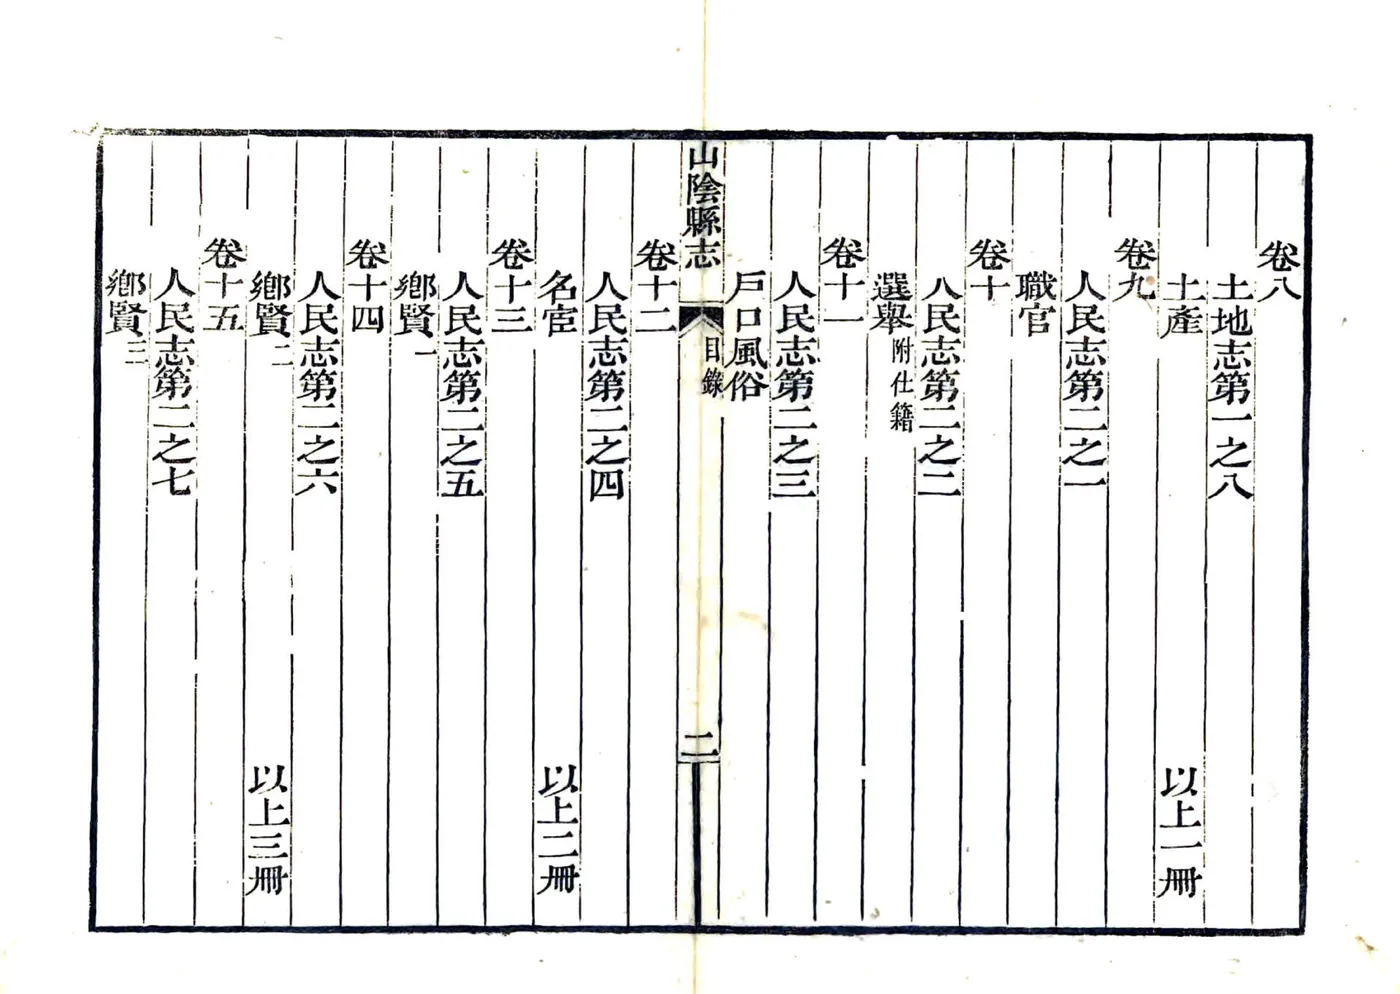 卷八
土地志第一之八
土產 以上一冊
卷九
人民志第二之一
職官
卷十
人民志第二之二
選舉附仕籍
卷十一
人民志第二之三
戶口風俗
山陰縣志 目錄 二
卷十二
人民志第二之四
名宦 以上二冊
卷十三
人民志第二之五
鄉賢一
卷十四
人民志第二之六
鄉賢二 以上三冊
卷十五
人民志第二之七
鄉賢三